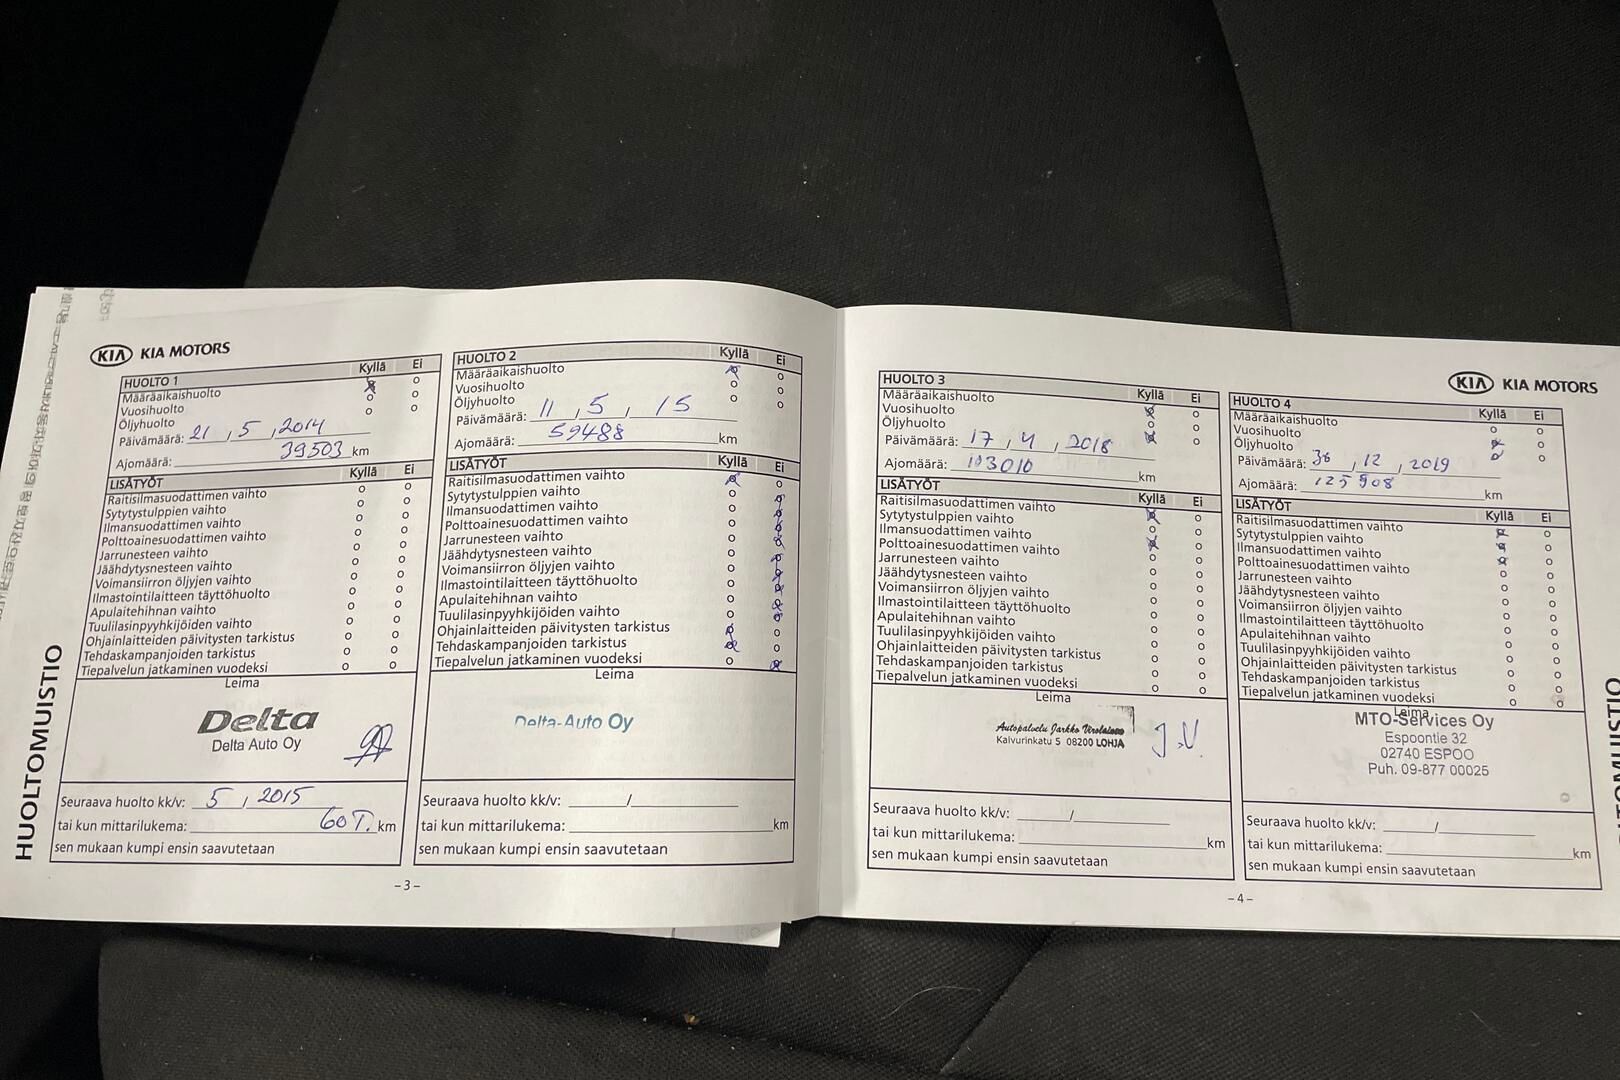 KIA KIA MOTORS
HUOLTO 1 Kyllä Ei
Määräaikaishuolto
Vuosihuolto
Öljyhuolto
Päivämäärä: 21 , 5 , 2014
Ajomäärä: 39503 km
LISÄTYÖT Kyllä Ei
Raitisilmasuodattimen vaihto
Sytytystulppien vaihto
Ilmansuodattimen vaihto
Polttoainesuodattimen vaihto
Jarrunesteen vaihto
Jäähdytysnesteen vaihto
Voimansiirron öljyjen vaihto
Ilmastointilaitteen täyttöhuolto
Apulaitehihnan vaihto
Tuulilasinpyyhkijöiden vaihto
Ohjainlaitteiden päivitysten tarkistus
Tehdaskampanjoiden tarkistus
Tiepalvelun jatkaminen vuodeksi
Leima
Delta
Delta Auto Oy
Seuraava huolto kk/v: 5 , 2015
tai kun mittarilukema: 60 T. km
sen mukaan kumpi ensin saavutetaan
HUOLTO 2 Kyllä Ei
Määräaikaishuolto
Vuosihuolto
Öljyhuolto
Päivämäärä: 11 , 5 , 15
Ajomäärä: 59488 km
LISÄTYÖT Kyllä Ei
Raitisilmasuodattimen vaihto
Sytytystulppien vaihto
Ilmansuodattimen vaihto
Polttoainesuodattimen vaihto
Jarrunesteen vaihto
Jäähdytysnesteen vaihto
Voimansiirron öljyjen vaihto
Ilmastointilaitteen täyttöhuolto
Apulaitehihnan vaihto
Tuulilasinpyyhkijöiden vaihto
Ohjainlaitteiden päivitysten tarkistus
Tehdaskampanjoiden tarkistus
Tiepalvelun jatkaminen vuodeksi
Leima
Delta-Auto Oy
Seuraava huolto kk/v: /
tai kun mittarilukema: km
sen mukaan kumpi ensin saavutetaan
HUOLTOMUISTIO
- 3 -
HUOLTO 3 Kyllä Ei
Määräaikaishuolto
Vuosihuolto
Öljyhuolto
Päivämäärä: 17 , 4 , 2018
Ajomäärä: 103010 km
LISÄTYÖT Kyllä Ei
Raitisilmasuodattimen vaihto
Sytytystulppien vaihto
Ilmansuodattimen vaihto
Polttoainesuodattimen vaihto
Jarrunesteen vaihto
Jäähdytysnesteen vaihto
Voimansiirron öljyjen vaihto
Ilmastointilaitteen täyttöhuolto
Apulaitehihnan vaihto
Tuulilasinpyyhkijöiden vaihto
Ohjainlaitteiden päivitysten tarkistus
Tehdaskampanjoiden tarkistus
Tiepalvelun jatkaminen vuodeksi
Leima
Autopalvelu Jarkko Virolainen
Kalvurinkatu 5 08200 LOHJA
J.V.
Seuraava huolto kk/v: /
tai kun mittarilukema: km
sen mukaan kumpi ensin saavutetaan
KIA KIA MOTORS
HUOLTO 4 Kyllä Ei
Määräaikaishuolto
Vuosihuolto
Öljyhuolto
Päivämäärä: , 12 , 2019
Ajomäärä: 125908 km
LISÄTYÖT Kyllä Ei
Raitisilmasuodattimen vaihto
Sytytystulppien vaihto
Ilmansuodattimen vaihto
Polttoainesuodattimen vaihto
Jarrunesteen vaihto
Jäähdytysnesteen vaihto
Voimansiirron öljyjen vaihto
Ilmastointilaitteen täyttöhuolto
Apulaitehihnan vaihto
Tuulilasinpyyhkijöiden vaihto
Ohjainlaitteiden päivitysten tarkistus
Tehdaskampanjoiden tarkistus
Tiepalvelun jatkaminen vuodeksi
Leima
MTO-Services Oy
Espoontie 32
02740 ESPOO
Puh. 09-877 00025
Seuraava huolto kk/v: /
tai kun mittarilukema: km
sen mukaan kumpi ensin saavutetaan
- 4 -